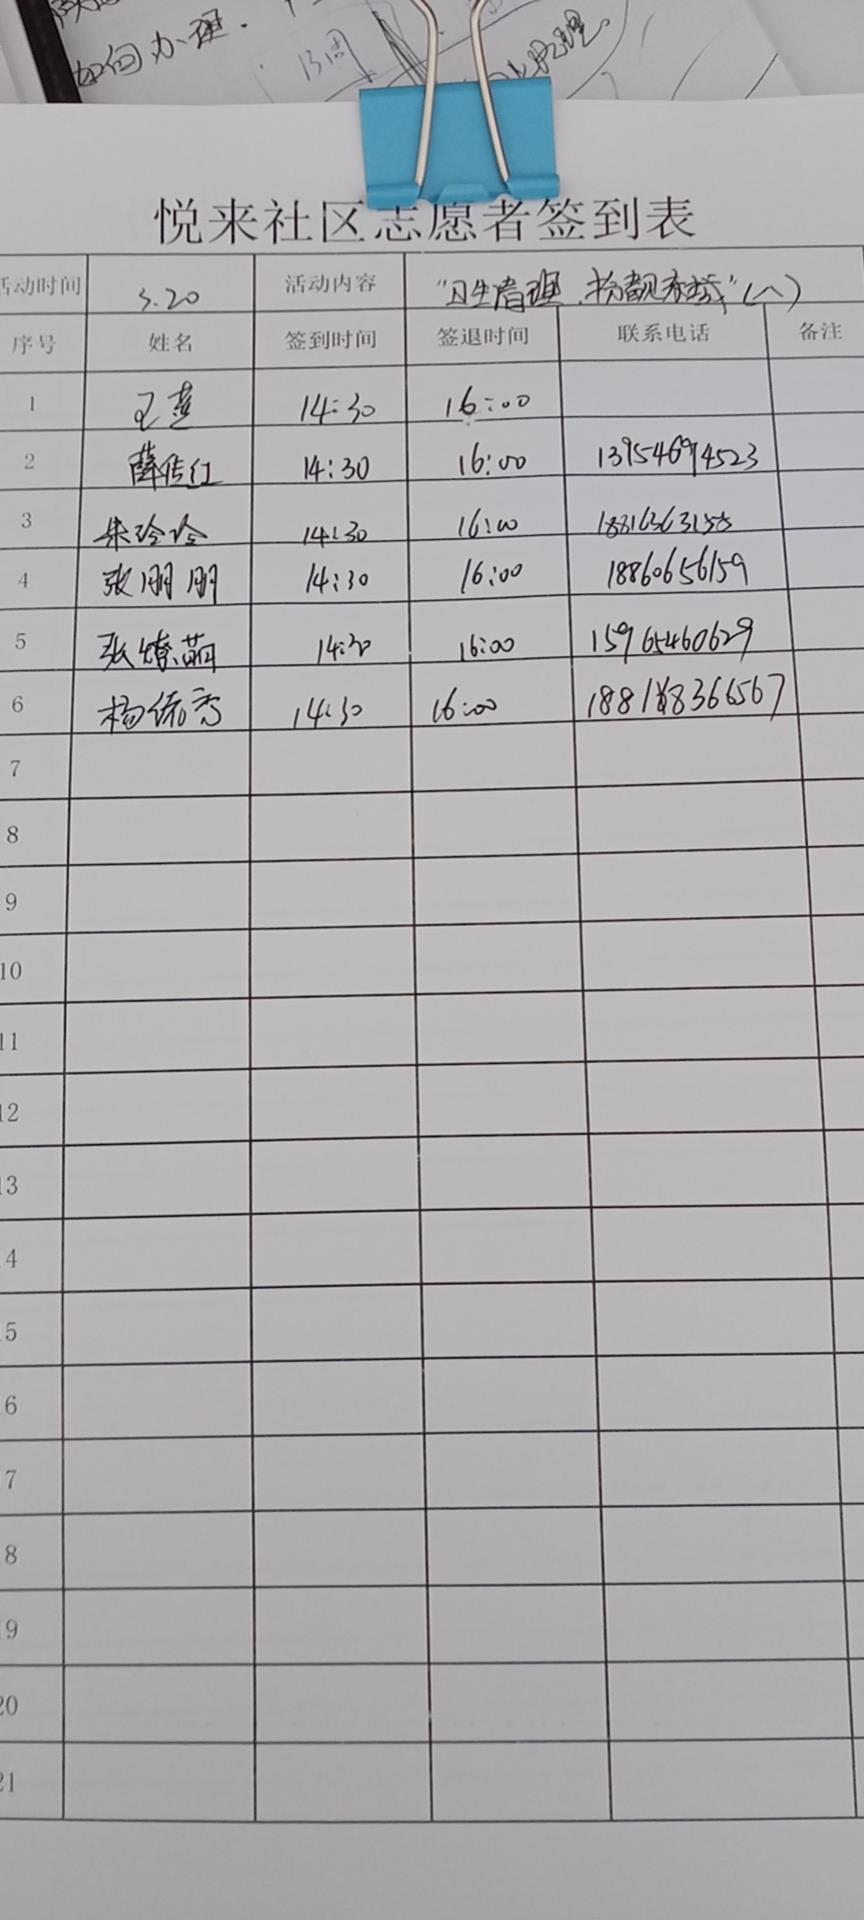 如何办理.
13周
悦来社区志愿者签到表
活动时间 3.20 活动内容 "卫生清理,扮靓东城"(八)
序号 姓名 签到时间 签退时间 联系电话 备注
1 王燕 14:30 16:00
2 薛传红 14:30 16:00 13954694523
3 朱玲玲 14:30 16:00
4 张朋朋 14:30 16:00 18860656159
5 张燎萌 14:30 16:00 15965460629
6 杨 14:30 16:00
7
8
9
10
11
12
13
14
15
16
17
18
19
20
21